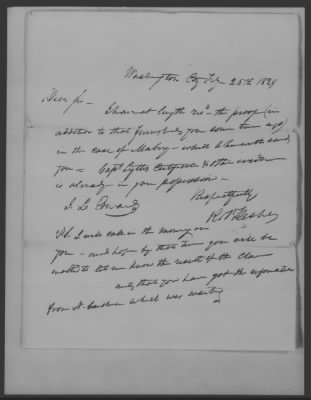 Washington City Feby 25th 1829
Dear Sir -
I have at length recd the proof (in
addition to that furnished you some time ago)
in the case of Mabry - which I herewith send
you = Capt Lyttes Certificate & other evidence
is already in your possession -
Respectfully
J L Edwards
P.S. I will call in the morning on
you - and hope by that time you will be
enabled to let me know the result of the Claim
and that you have got the information
from N. Carolina which was wanting